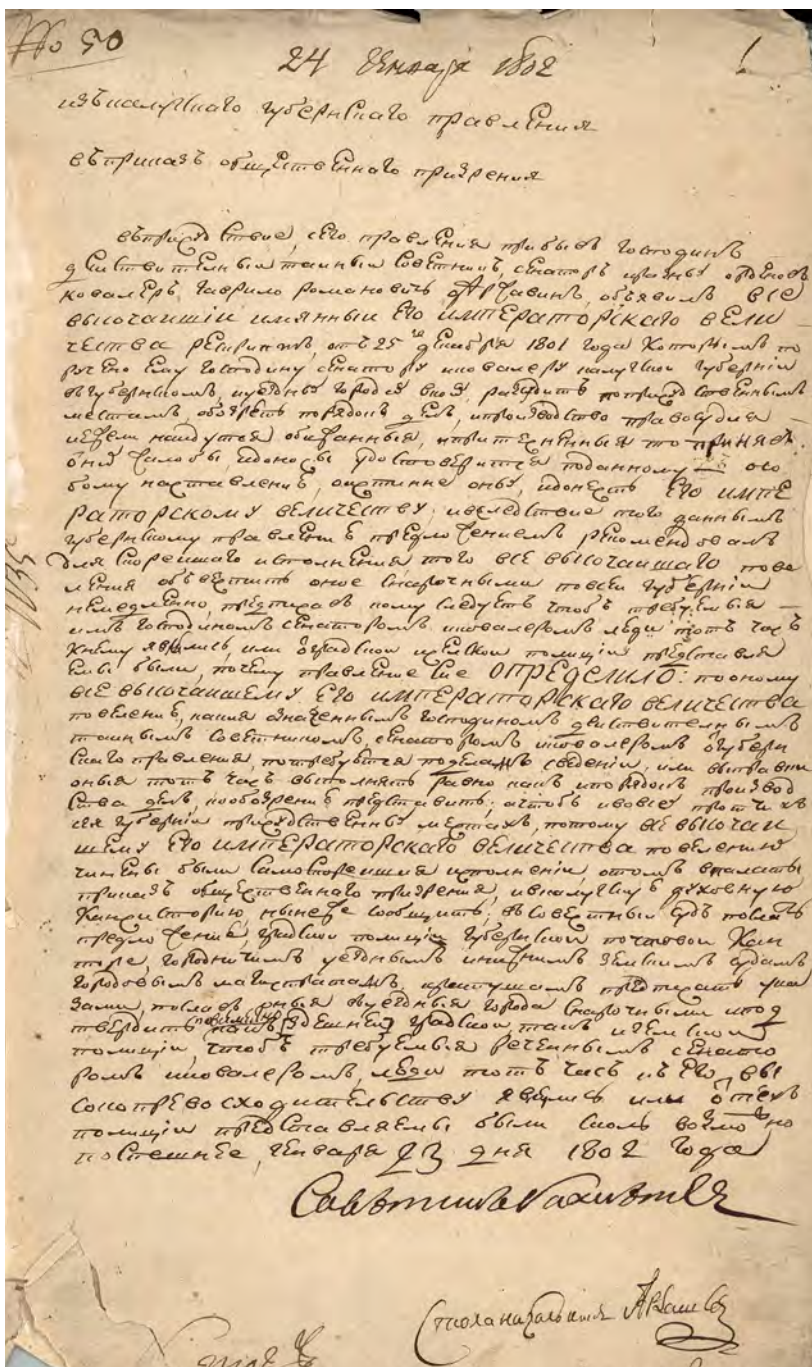 № 50
24 Генваря 1802
изъ калужскаго губернскаго правления
въ приказъ общественнаго призрения
въ присудствие, сего правления прибывъ господинъ
действителныи таиныи советникъ, сенаторъ и разныхъ орденовъ
ковалеръ, гаврило романовичь державинъ, объявилъ все
высочаишии имянныи его императорскаго вели
чества рескриптъ, отъ 25 го декабря 1801 года которымъ по
ручено ему господину сенатору и ковалеру калужскои губернии
въ губернскомъ, и уездныхъ городахъ по присудственнымъ
местамъ, обозреть порядокъ делъ, и производство правосудия
и ежели наидутся обиженныя, и притесненныя то принявъ
онихъ жалобы, и доносы удостоверится по данному осо
бому наставлению, о истинне оныхъ, и донесть его импе
раторскому величеству; и вследствие того даннымъ
губернскому правлению предложениемъ рекомендовалъ
для скореишаго исполнения того всевысочаишаго пове
ления обвестить оное с нарочными по всеи губернии
немедленно, предписавъ кому следуетъ чтобъ требуемыя
имъ господиномъ сенаторомъ, и ковалеромъ люди тотъ часъ
к нему явились, или о градскои и земскои полиции представля
емы были, почему правление сие ОПРЕДЕЛИЛО: по оному
все высочаишему его императорскаго величества
повелению, какия означеннымъ господиномъ действителнымъ
таинымъ советникомъ, сенаторомъ и ковалеромъ о губерн
скаго правления, потребуются по деламъ сведении, или выправки
оныя тотъ часъ выполнять равно какъ и порядокъ производ
ства делъ, к обозрению представить; а чтобъ и во всехъ протчихъ
сея губернии присудственныхъ местахъ, по тому все высочаи
шему его императорскаго величества повелению
чинены были самоскореишия исполнении, о томъ в палаты
приказъ общественнаго призрения, и калужскую духовную
Канзисторию, ныне же сообщить; в совестныи судъ послать
предложение, градскои полиции губернскои почтовои Кан
торе, городничимъ уезднымъ и нижнимъ земскимъ судамъ
городовымъ магистратамъ, и ратушамъ предписать ука
зами, послав оныя в уездныя города с нарочными и под
твердить какъ здешнеи градскои такъ и земскои
полиции, чтобъ требуемыя реченнымъ сенато
ромъ и ковалеромъ, люди тотъ часъ къ его вы
сокопревосходительству явились или о техъ
полиции представляемы были сколь возможно
поспешнее, генваря 23 дня 1802 года
Советникъ
Столоначальникъ